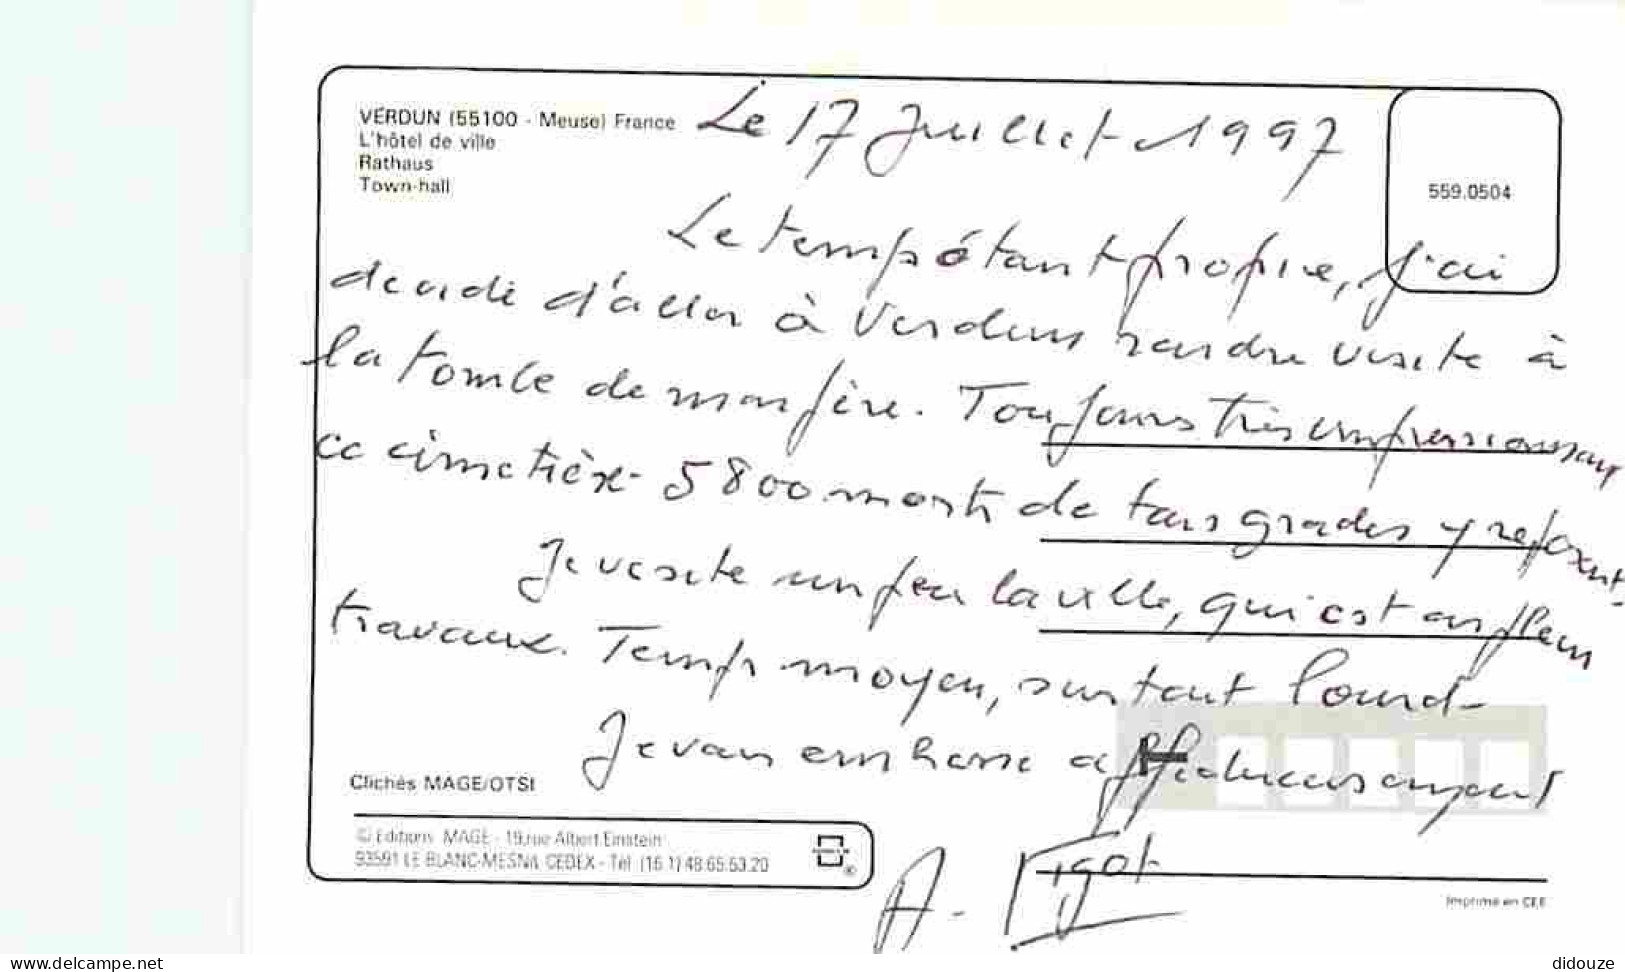 VERDUN (55100 - Meuse) France
L'hôtel de ville
Rathaus
Town-hall
559.0504
Le 17 Juillet 1997
Le temps étant propice, j'ai
décidé d'aller à Verdun rendre visite à
la tombe de mon père. Toujours très impressionnant
ce cimetière. 5800 morts de tous grades y reposent.
Je visite un peu la ville, qui est en plein
travaux. Temps moyen, surtout lourd.
Je vous embrasse affectueusement
A. Vigot
Clichés MAGE/OTSI
© Editions MAGE - 19, rue Albert Einstein
93591 LE BLANC-MESNIL CEDEX - Tél. (16.1) 48.65.53.20
Imprimé en CEE
www.delcampe.net
didouze